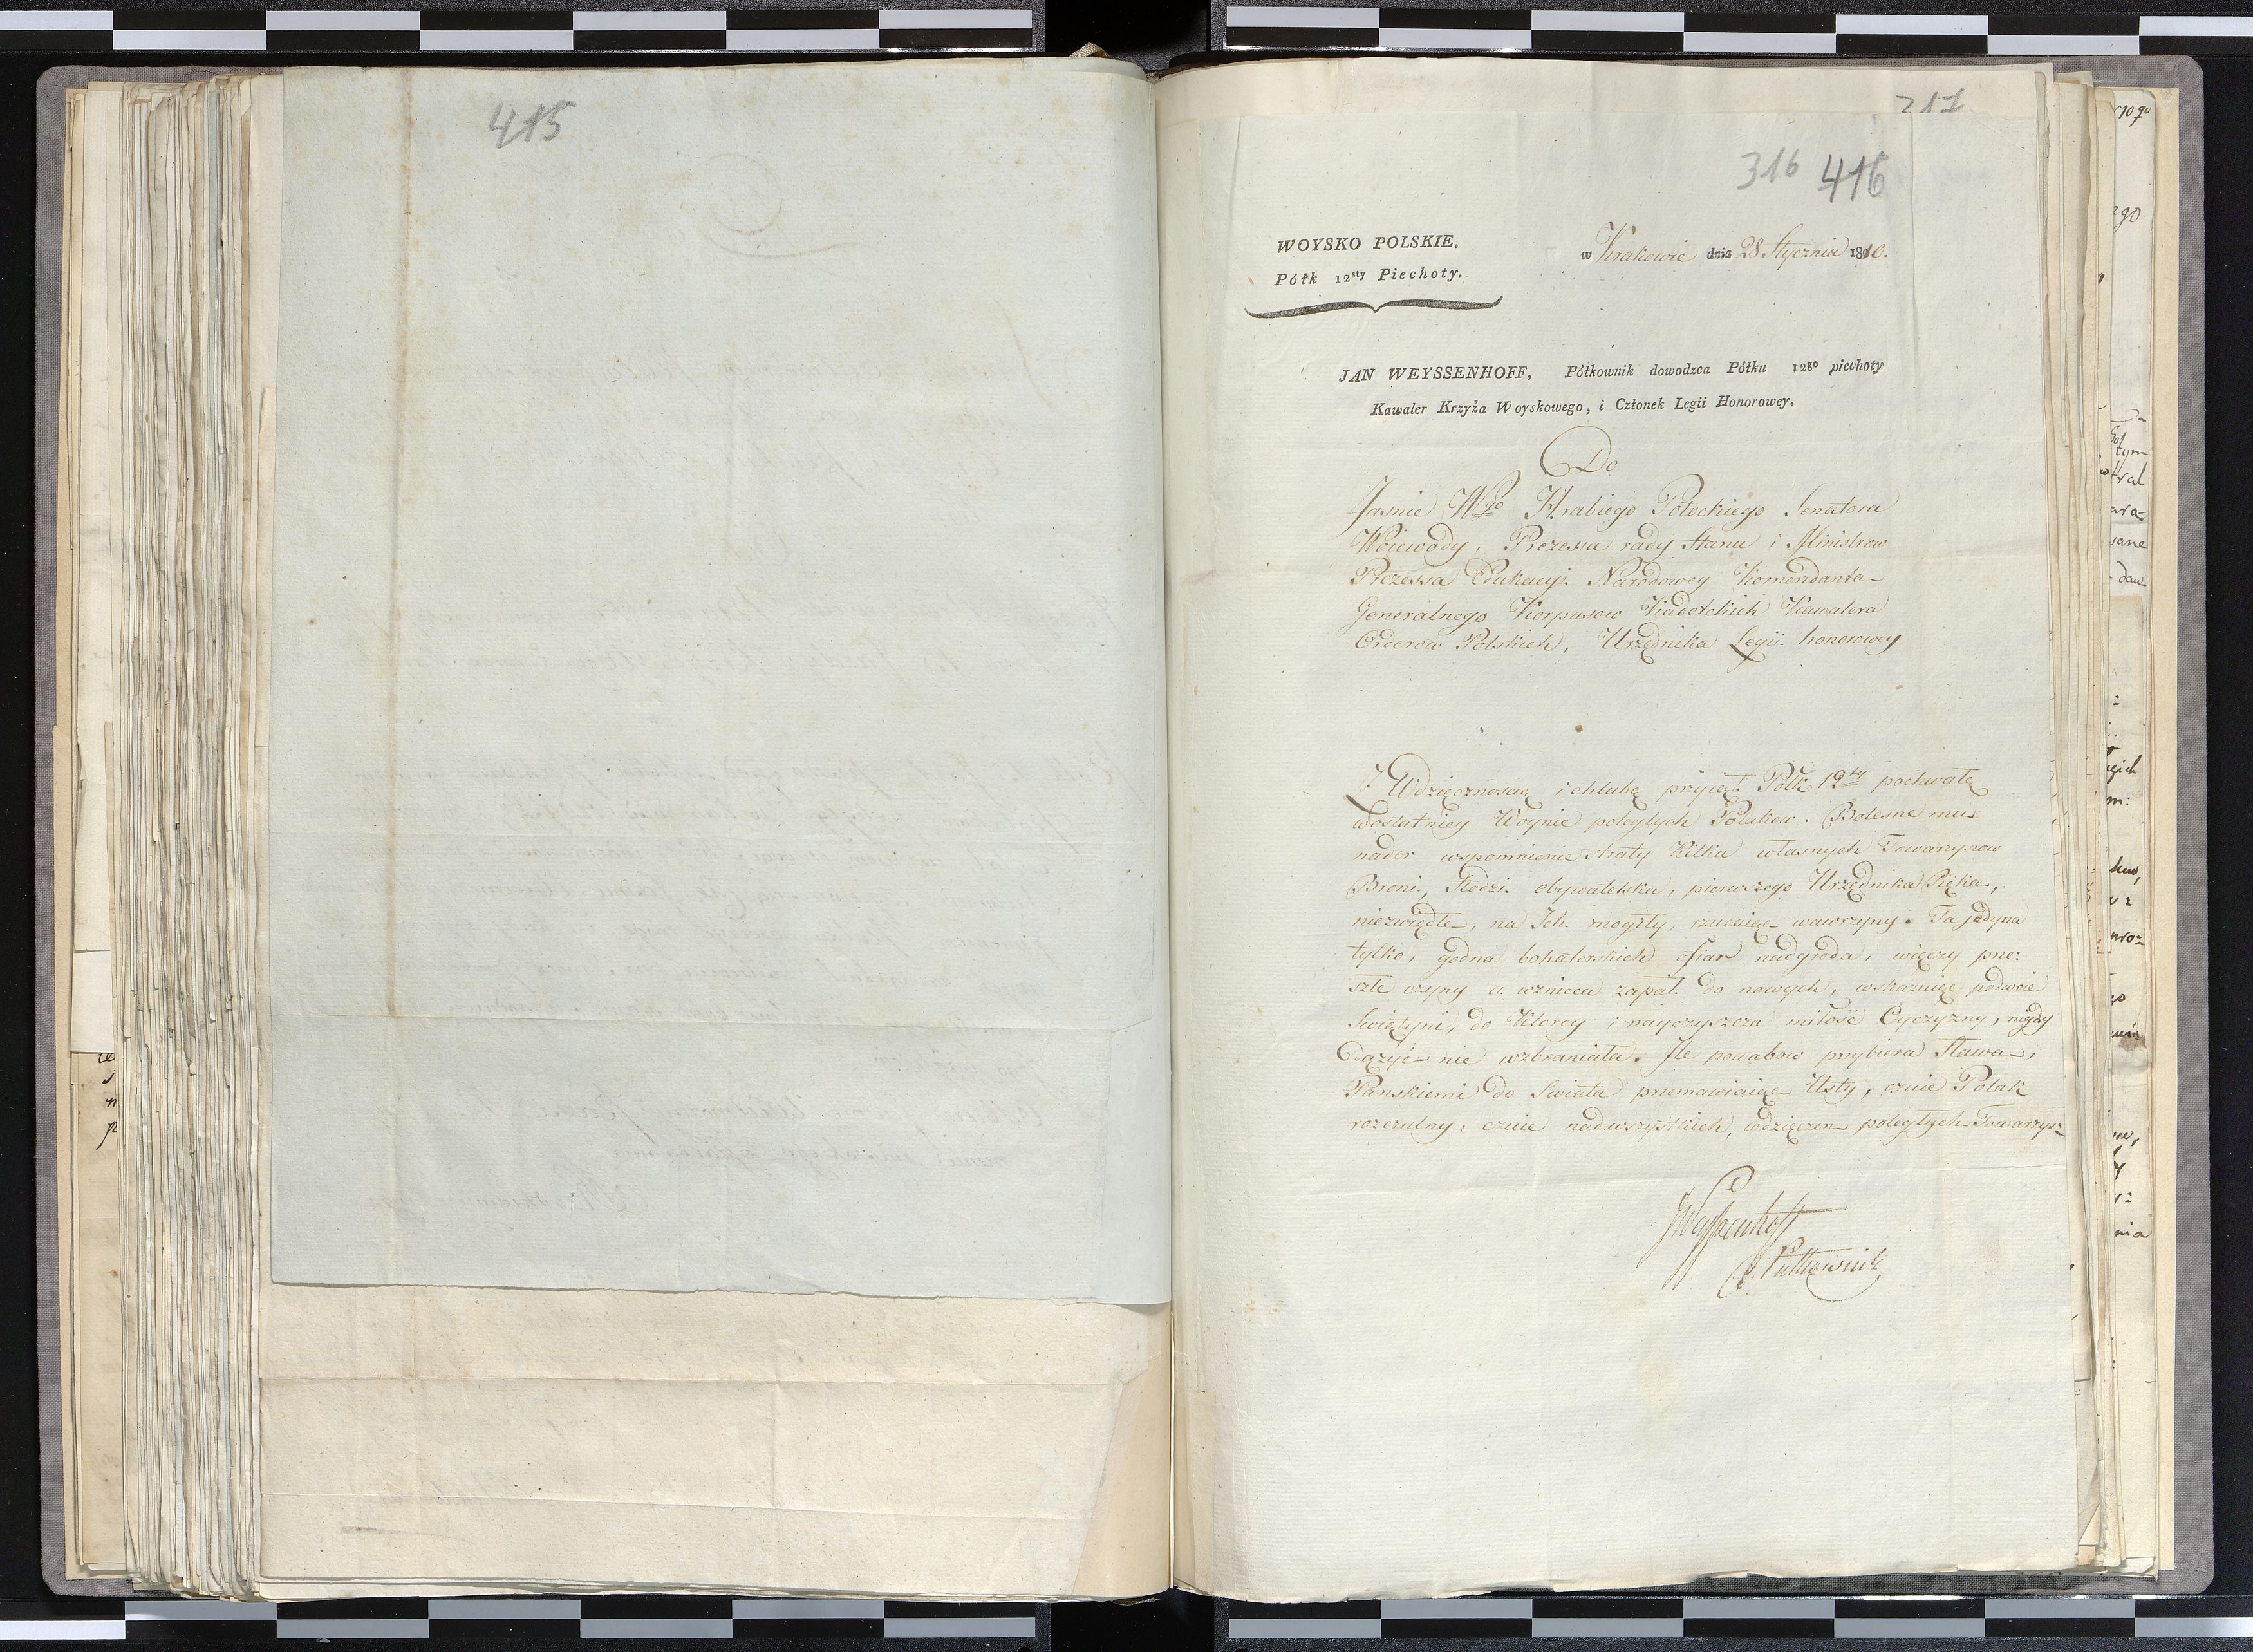 415
211
316 416
WOYSKO POLSKIE.
w Krakowie dnia 28 Stycznia 1810.
Półk 12sty Piechoty.
JAN WEYSSENHOFF, Półkownik dowodzca Półku 12go piechoty
Kawaler Krzyża Woyskowego, i Członek Legii Honorowey.
Do
Jasnie Wgo Hrabiego Potockiego Senatora
Woiewody, Prezessa rady Stanu i Ministrow
Prezessa Edukacyi Narodowey Komendanta
Generalnego Korpusow Kadetskich Kawalera
Orderow Polskich, Urzędnika Legii honorowey
Z Wdzięcznoscią i chlubą przyiął Połk 12ty pochwałę
wostatniey Woynie poległych Polakow. Bolesne mu
nader wspomnienie straty Kilku własnych Towarzyszow
Broni, słodzi obywatelska, pierwszego Urzędnika Ręka,
niezwiędłe, na Ich mogiły, rzucaiąc wawrzyny. Ta jedyna
tylko, godna bohaterskich ofiar nadgroda, więczy prze:
szłe czyny a wznieca zapał do nowych, wskazuiąc podwoie
Swiątyni, do Ktorey i nayczyszcza miłość Oyczyzny, nigdy
dążyć nie wzbraniała. Ile powabow przybiera Sława,
Pańskiemi do Swiata przemawiaiąc Usty, czuie Polak
rozczulny, czuie nadwszystkich, wdzięczen poległych Towarzysz
JWeyssenhoff
Pułkownik